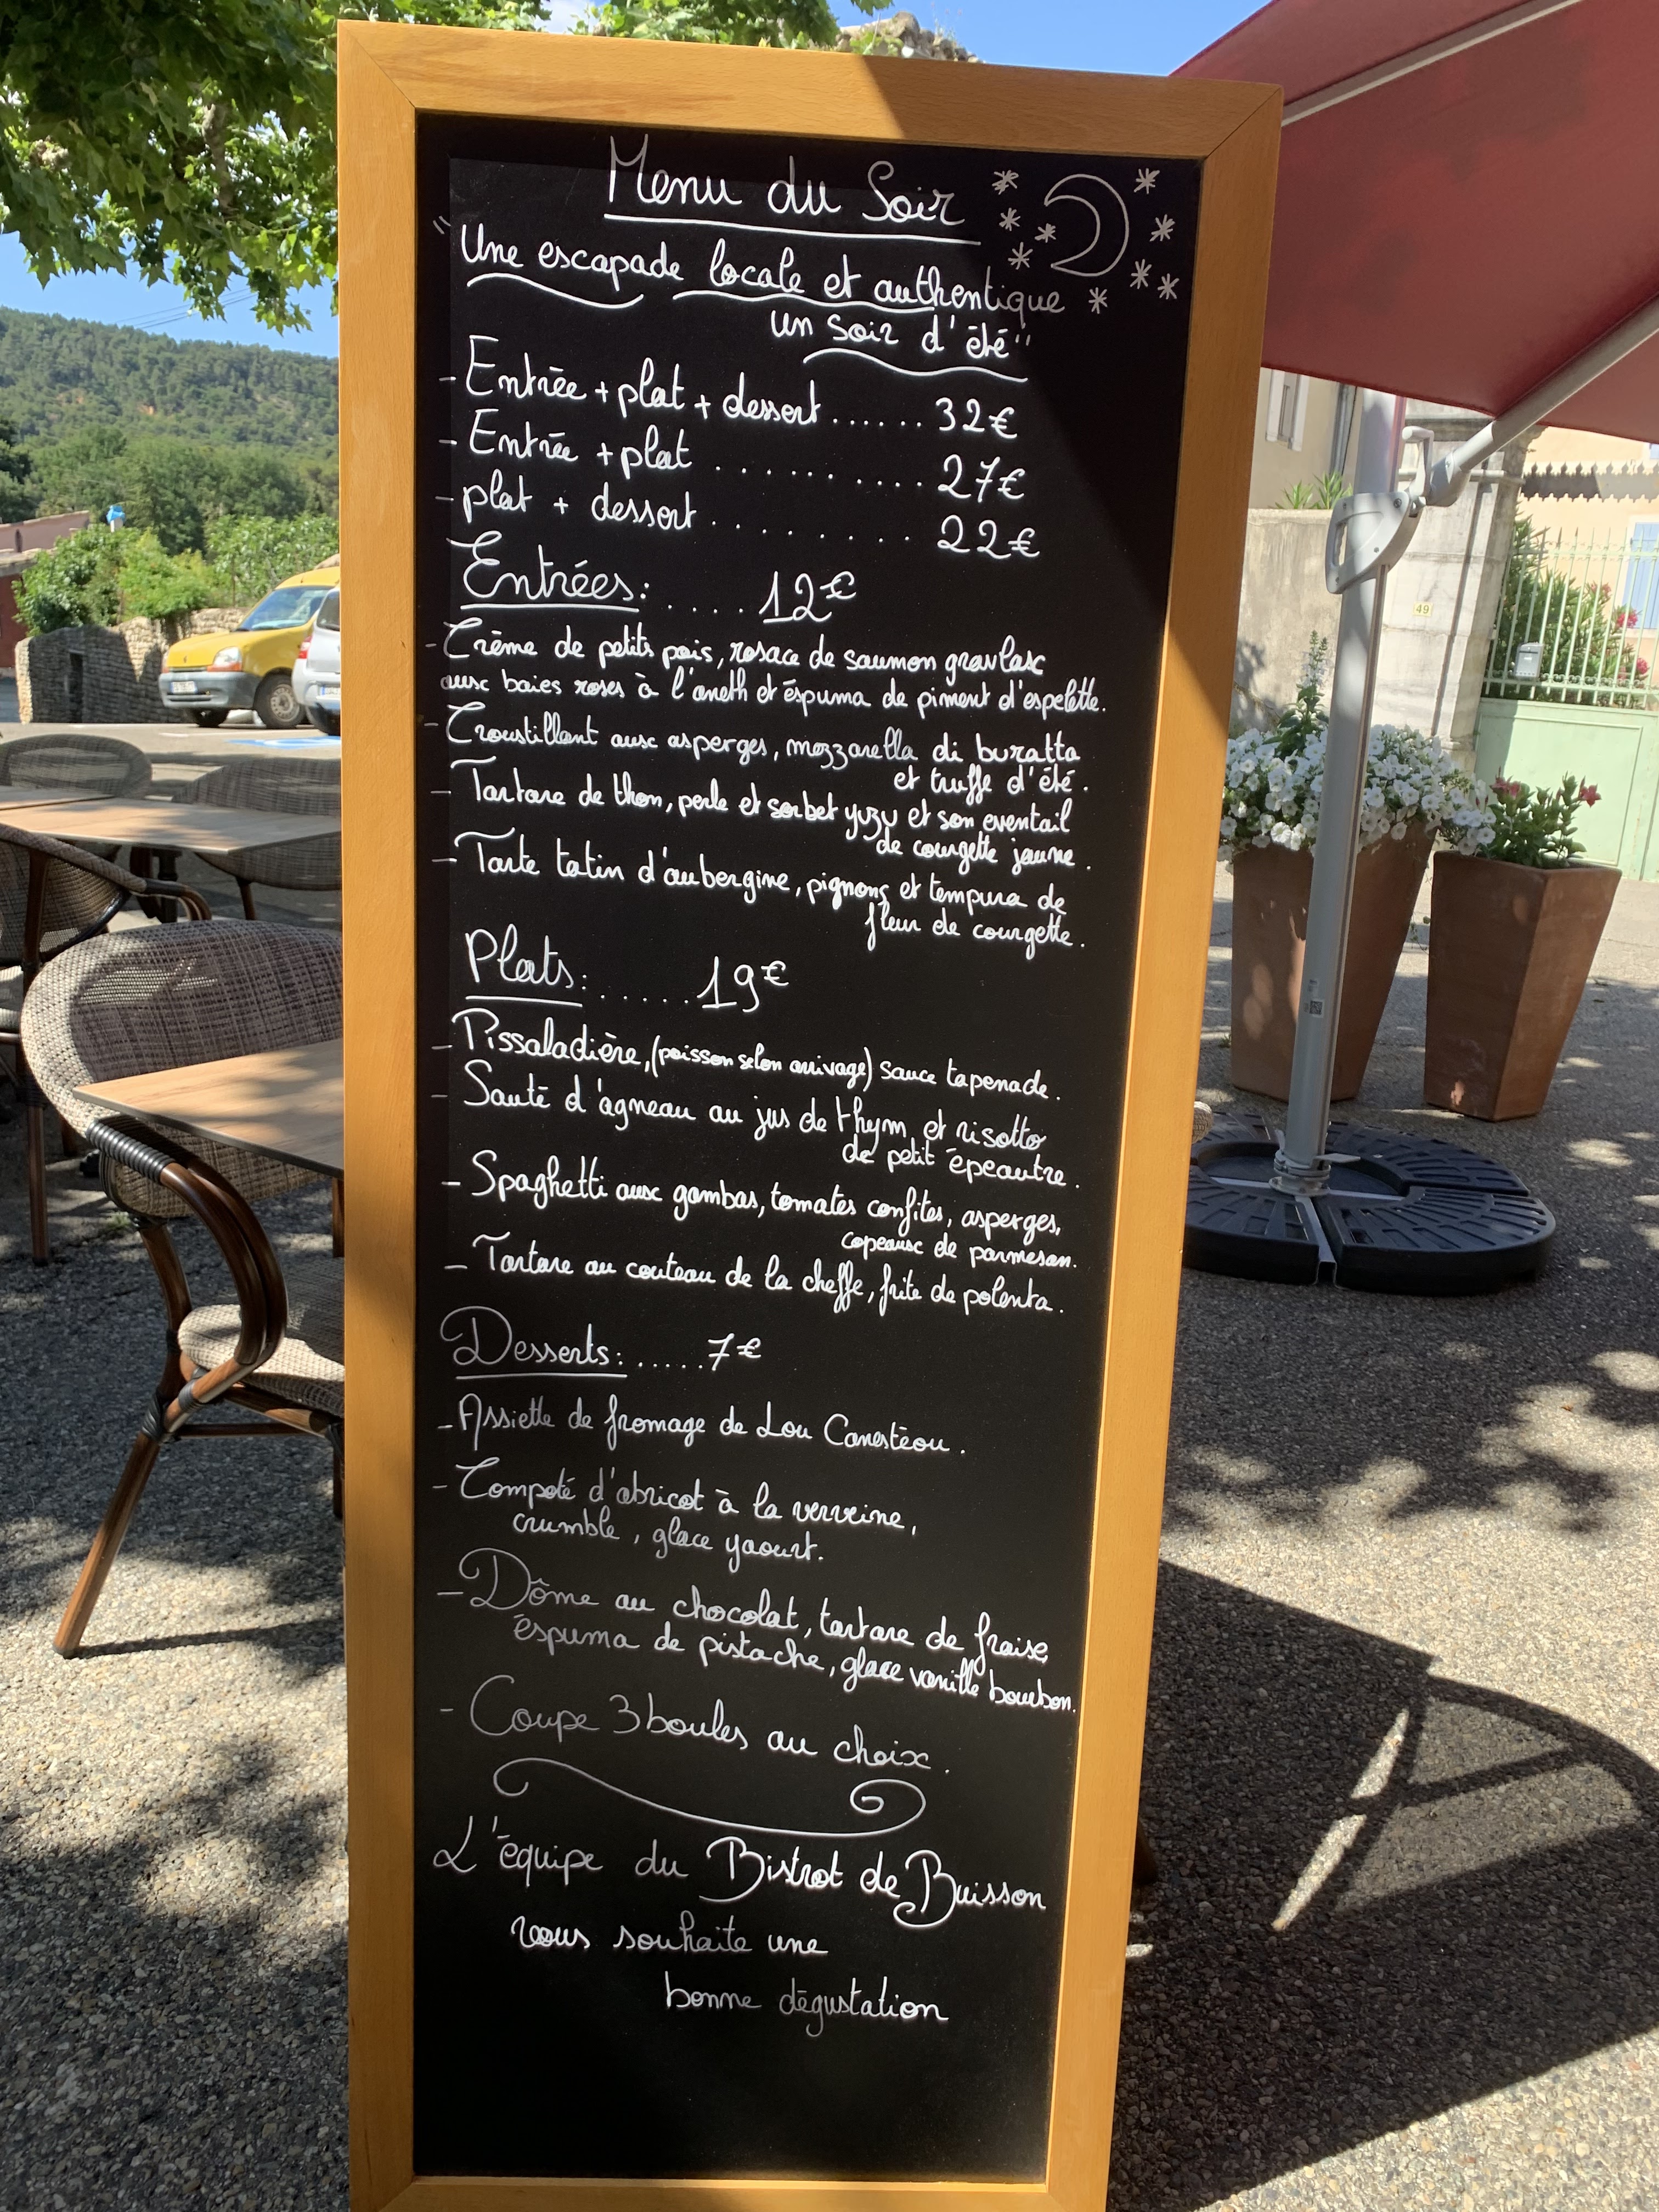 Menu du Soir
"Une escapade locale et authentique
un soir d'été"
- Entrée + plat + dessert ...... 32€
- Entrée + plat .......... 27€
- plat + dessert ........ 22€
Entrées: .... 12€
- Crème de petits pois, rosace de saumon gravlax
aux baies roses à l'aneth et éspuma de piment d'espelette.
- Croustillant aux asperges, mozzarella di buratta
et truffe d'été.
- Tartare de thon, perle et sorbet yuzu et son eventail
de courgette jaune.
- Tarte tatin d'aubergine, pignons et tempura de
fleur de courgette.
Plats: ..... 19€
- Pissaladière, (poisson selon arrivage) sauce tapenade.
- Sauté d'agneau au jus de thym et risotto
de petit épeautre.
- Spaghetti aux gambas, tomates confites, asperges,
copeaux de parmesan.
- Tartare au couteau de la cheffe, frite de polenta.
Desserts: ..... 7€
- Assiette de fromage de Lou Canestéou.
- Compoté d'abricot à la verveine,
crumble, glace yaourt.
- Dôme au chocolat, tartare de fraise,
éspuma de pistache, glace vanille bourbon.
- Coupe 3 boules au choix.
L'équipe du Bistrot de Buisson
vous souhaite une
bonne dégustation
49